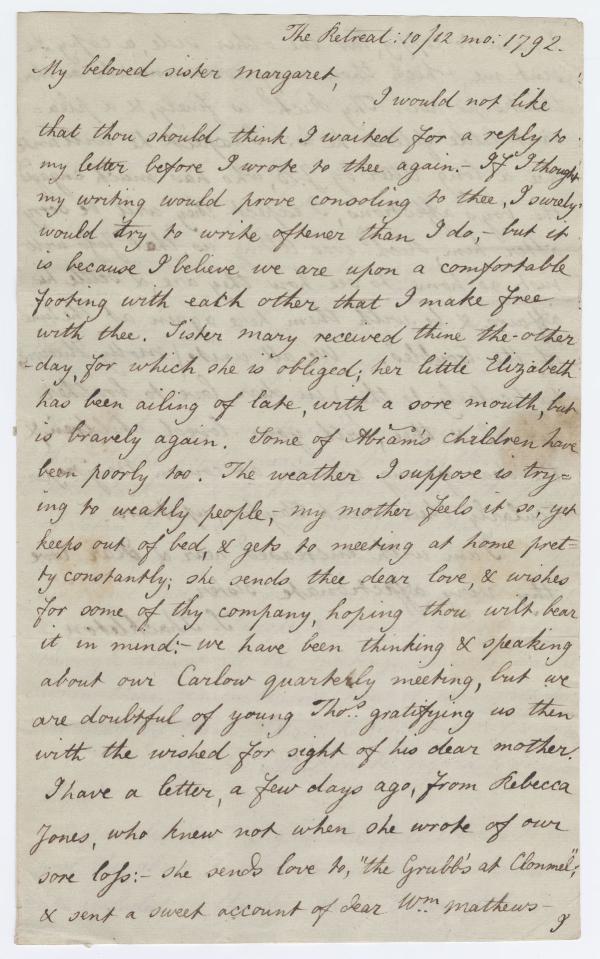 The Retreat: 10/12 mo: 1792.
My beloved sister Margaret,
I would not like
that thou should think I waited for a reply to
my letter before I wrote to thee again. – If I thought
my writing would prove consoling to thee, I surely
would try to write oftener than I do, – but it
is because I believe we are upon a comfortable
footing with each other that I make free
with thee. Sister Mary received thine the other
-day, for which she is obliged; her little Elizabeth
has been ailing of late, with a sore mouth, but
is bravely again. Some of Abram's children have
been poorly too. The weather I suppose is try=
ing to weakly people, – my mother feels it so, yet
keeps out of bed, & gets to meeting at home pret=
ty constantly; she sends thee dear love, & wishes
for some of thy company, hoping thou wilt bear
it in mind: – we have been thinking & speaking
about our Carlow quarterly meeting, but we
are doubtful of young Thos. gratifying us then
with the wished for sight of his dear mother.
I have a letter, a few days ago, from Rebecca
Jones, who knew not when she wrote of our
sore loss: – she sends love to, "the Grubb's at Clonmel";
& sent a sweet account of dear Wm Mathews –
I